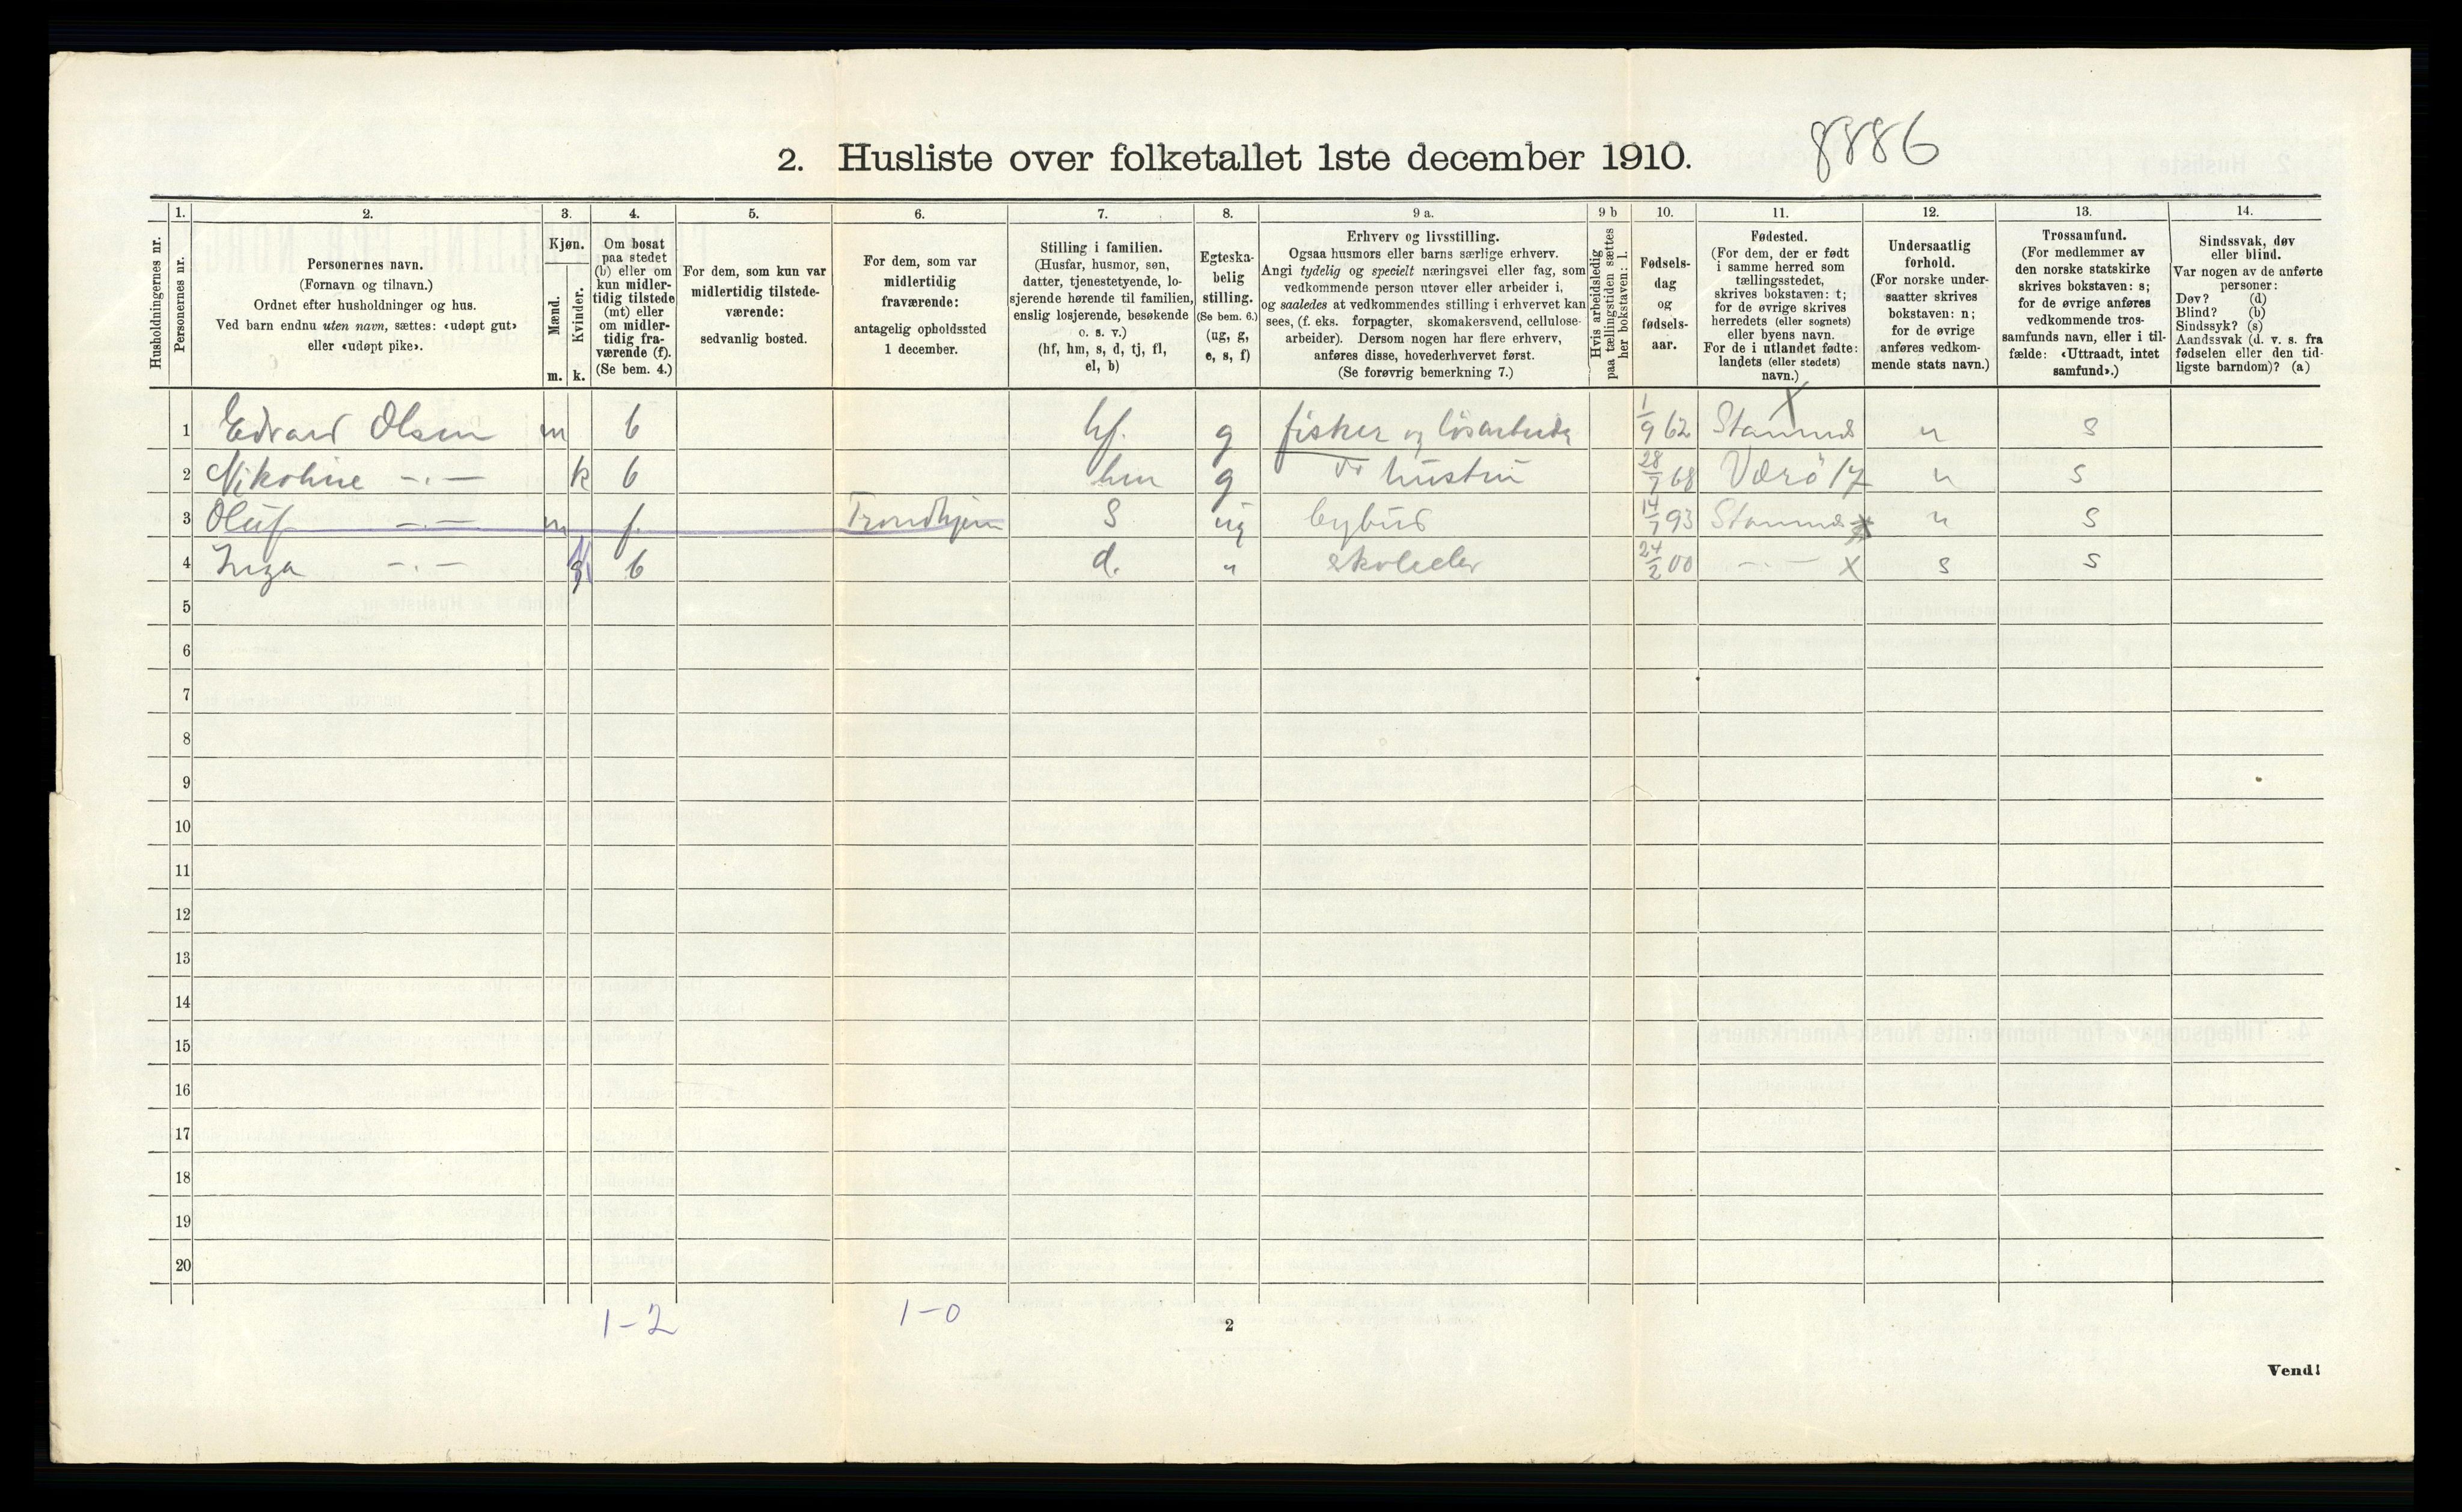 8886
2. Husliste over folketallet 1ste december 1910.
Husholdningernes nr.
1. Personernes nr.
2. Personernes navn.
(Fornavn og tilnavn.)
Ordnet efter husholdninger og hus.
Ved barn endnu uten navn, sættes: «udøpt gut»
eller «udøpt pike».
3. Kjøn.
Mænd. m.
Kvinder. k.
4. Om bosat
paa stedet
(b) eller om
kun midler-
tidig tilstede
(mt) eller
om midler-
tidig fra-
værende (f).
(Se bem. 4.)
5. For dem, som kun var
midlertidig tilstede-
værende:
sedvanlig bosted.
6. For dem, som var
midlertidig
fraværende:
antagelig opholdssted
1 december.
7. Stilling i familien.
(Husfar, husmor, søn,
datter, tjenestetyende, lo-
sjerende hørende til familien,
enslig losjerende, besøkende
o. s. v.)
(hf, hm, s, d, tj, fl,
el, b)
8. Egteska-
belig
stilling.
(Se bem. 6.)
(ug, g,
e, s, f)
9 a. Erhverv og livsstilling.
Ogsaa husmors eller barns særlige erhverv.
Angi tydelig og specielt næringsvei eller fag, som
vedkommende person utøver eller arbeider i,
og saaledes at vedkommendes stilling i erhvervet kan
sees, (f. eks. forpagter, skomakersvend, cellulose-
arbeider). Dersom nogen har flere erhverv,
anføres disse, hovederhvervet først.
(Se forøvrig bemerkning 7.)
9 b Hvis arbeidsledig
paa tællingstiden sættes
her bokstaven: l.
10. Fødsels-
dag
og
fødsels-
aar.
11. Fødested.
(For dem, der er født
i samme herred som
tællingsstedet,
skrives bokstaven: t;
for de øvrige skrives
herredets (eller sognets)
eller byens navn.
For de i utlandet fødte:
landets (eller stedets)
navn.)
12. Undersaatlig
forhold.
(For norske under-
saatter skrives
bokstaven: n;
for de øvrige
anføres vedkom-
mende stats navn.)
13. Trossamfund.
(For medlemmer av
den norske statskirke
skrives bokstaven: s;
for de øvrige anføres
vedkommende tros-
samfunds navn, eller i til-
fælde: «Uttraadt, intet
samfund».)
14. Sindssvak, døv
eller blind.
Var nogen av de anførte
personer:
Døv? (d)
Blind? (b)
Sindssyk? (s)
Aandssvak (d. v. s. fra
fødselen eller den tid-
ligste barndom)? (a)
1 Edvard Olsen m b hf. g fisker og løsarbeider 1/9 62 Stamnes X n s
2 Nikoline -.- k b hm g hustru 28/7 68 Værö 17 n s
3 Oluf -.- m f. Trondhjem s ug bybud 14/7 93 Stamnes X n s
4 Inga -.- k b d. " skoleelev 24/2 00 -.- X s s
5
6
7
8
9
10
11
12
13
14
15
16
17
18
19
20
1-2 1-0
2
Vend!